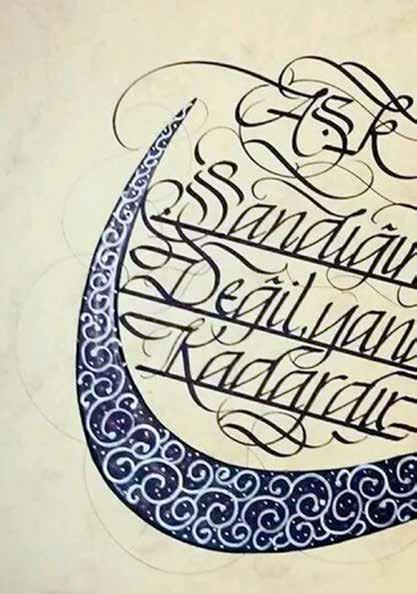 Aşk
Sandığın
Değil,yan
Kadardır